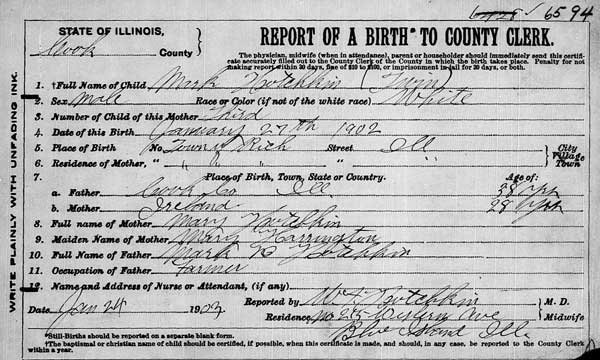 6594
STATE OF ILLINOIS,
Cook County
REPORT OF A BIRTH* TO COUNTY CLERK.
The physician, midwife (when in attendance), parent or householder should immediately send this certifi-
cate accurately filled out to the County Clerk of the County in which the birth takes place. Penalty for not
making report within 30 days, fine of $10 to $100, or imprisonment in jail for 30 days, or both.
WRITE PLAINLY WITH UNFADING INK.
1. †Full Name of Child Mark Hotchkin (Twin)
2. Sex Male Race or Color (if not of the white race) White
3. Number of Child of this Mother Third
4. Date of this Birth January 27th 1902
5. Place of Birth No. Town of Rich Street Ill City
6. Residence of Mother, " " " " Village
Town
7. Place of Birth, Town, State or Country. Age of:
a. Father Cook Co Ill 38 yrs
b. Mother Ireland 28 yrs
8. Full name of Mother Mary Hotchkin
9. Maiden Name of Mother Mary Harrington
10. Full Name of Father Mark B Hotchkin
11. Occupation of Father Farmer
12. Name and Address of Nurse or Attendant, (if any).
Date Jan 24 1903 Reported by Hotchkin M. D.
Residence No. Western Ave Midwife
Blue Island Ill.
*Still-Births should be reported on a separate blank form.
†The baptismal or christian name of child should be certified, if possible, when this certificate is made, and should, in any case, be reported to the County Clerk
within a year.